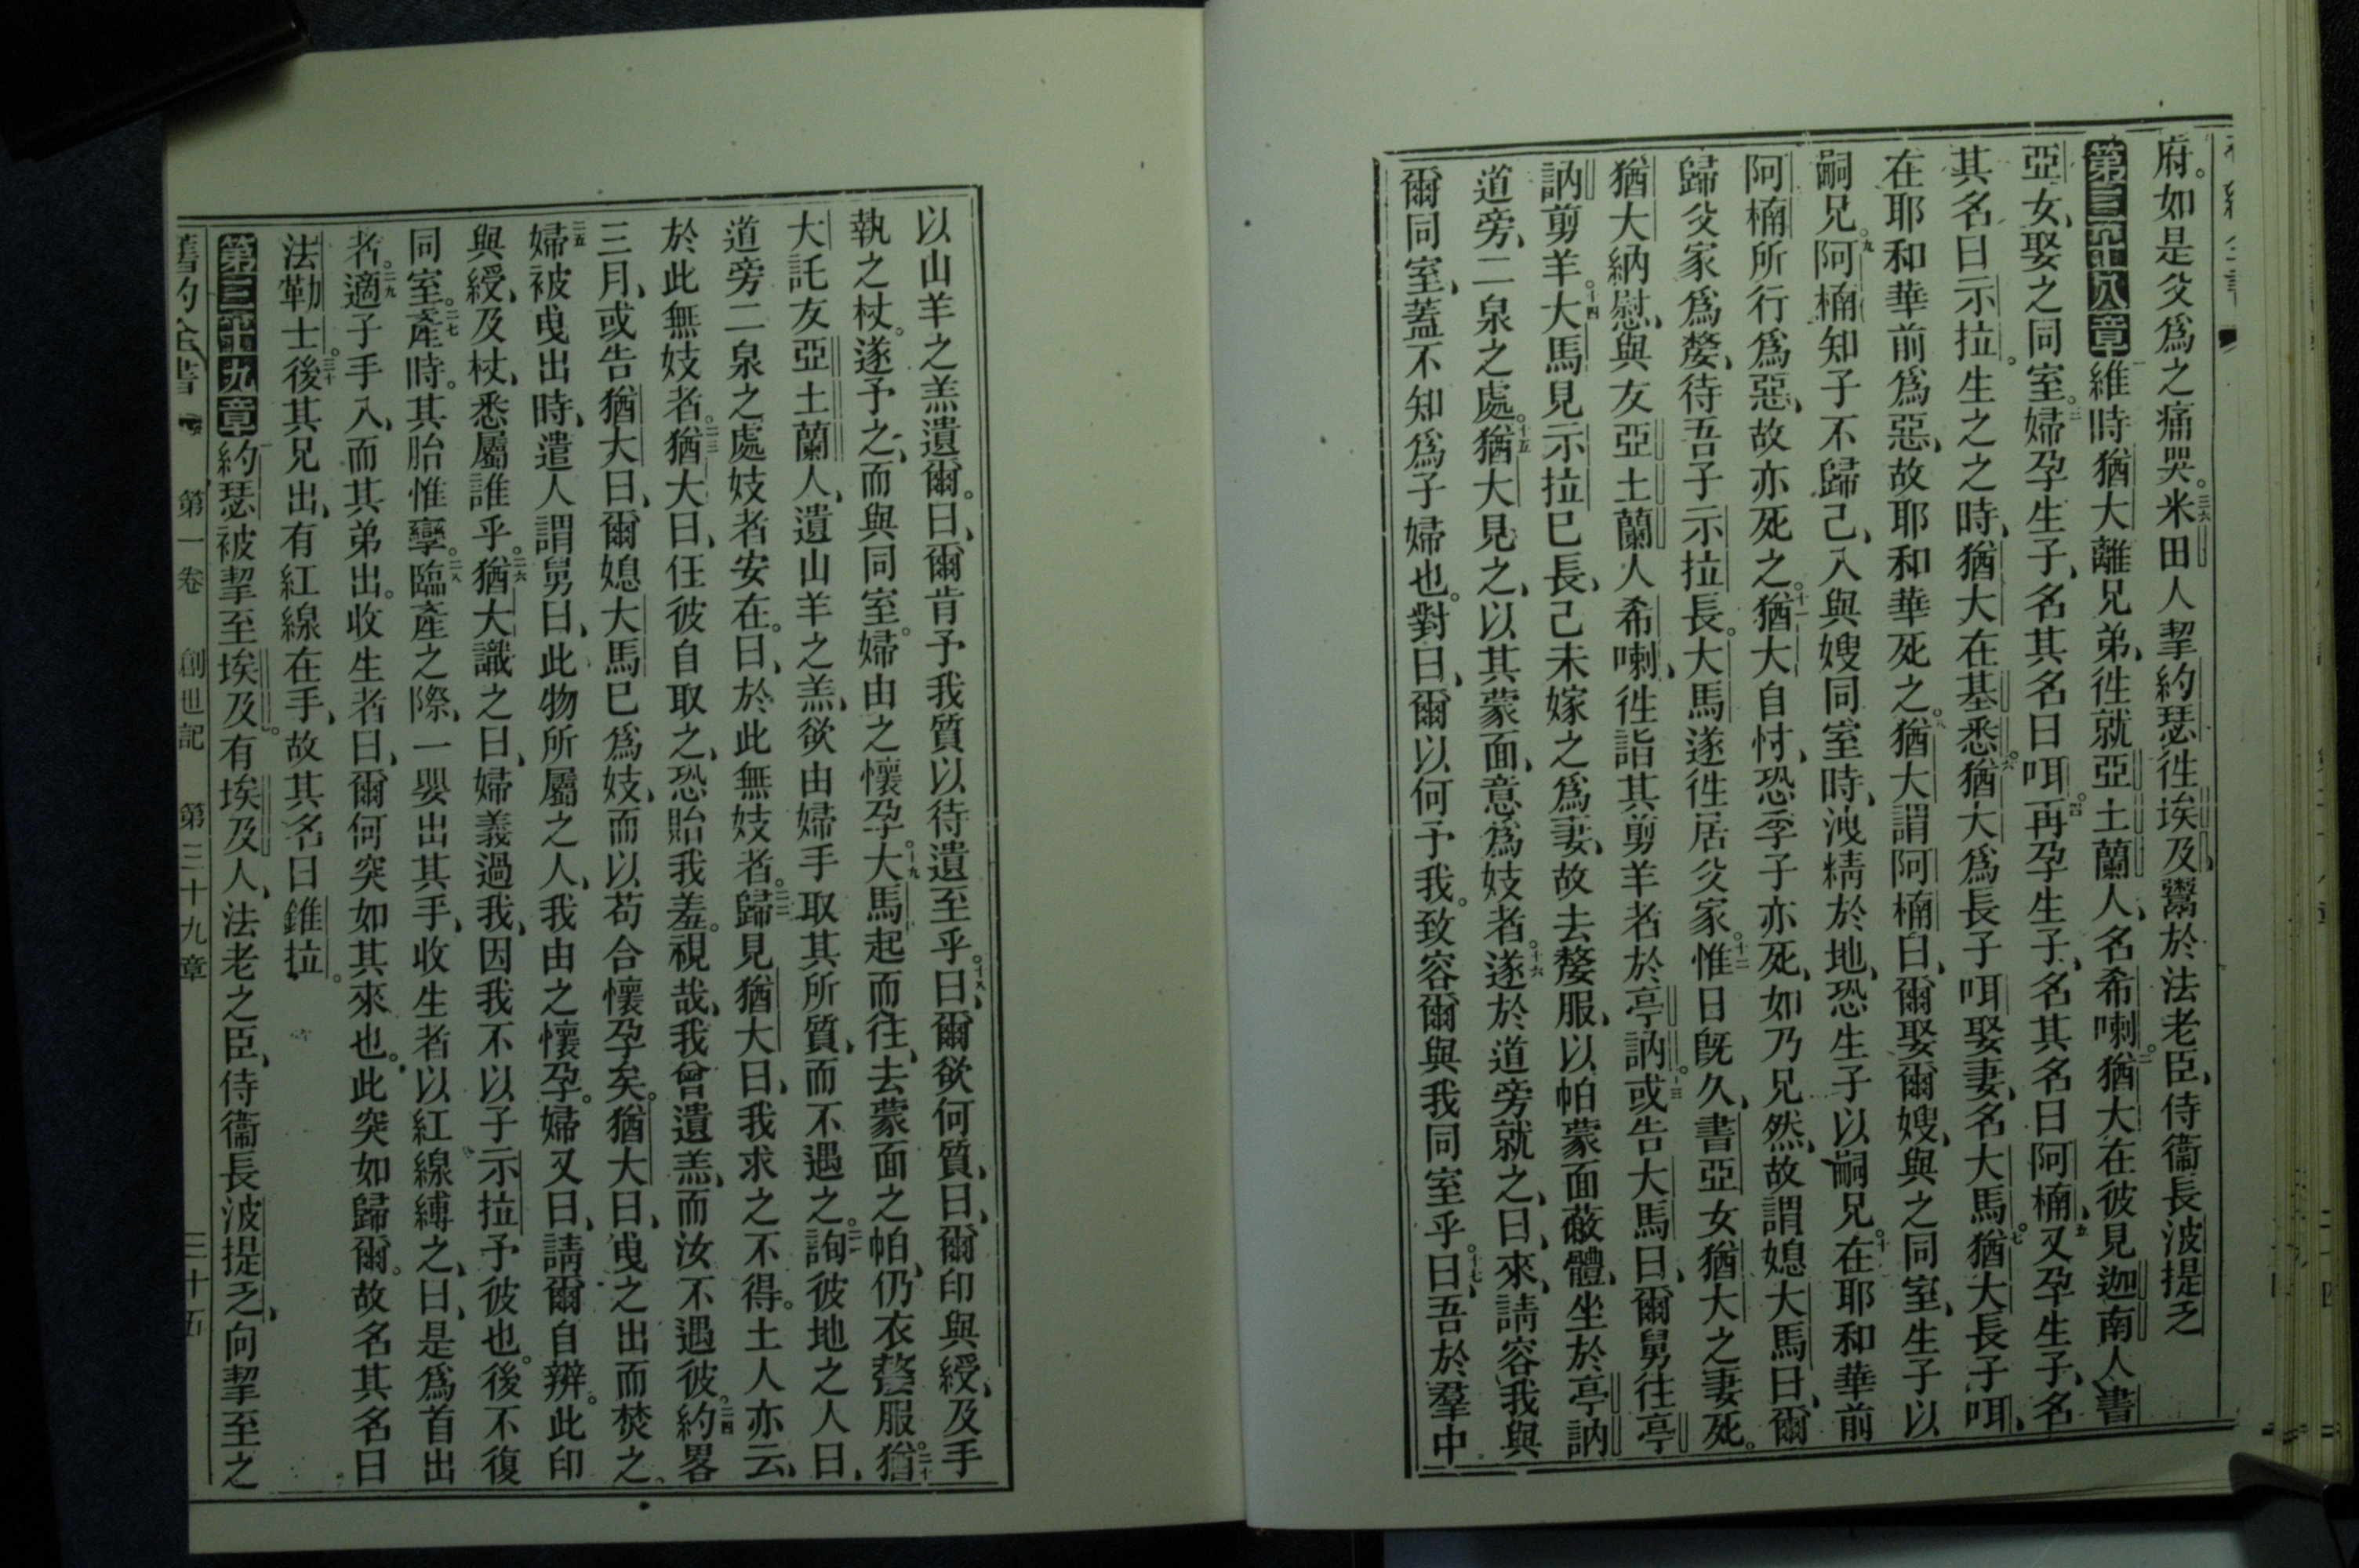 府。如是父爲之痛哭。三六米田人挈約瑟徃埃及、鬻於法老臣、侍衞長波提乏
第三十八章一維時猶大離兄弟、徃就亞土蘭人、名希喇。二猶大在彼見迦南人、書
亞女、娶之同室。三婦孕生子、名其名曰咡。四再孕生子、名其名曰阿楠、五又孕生子、名
其名曰示拉。生之之時、猶大在基悉。六猶大爲長子咡娶妻、名大馬。七猶大長子咡、
在耶和華前爲惡、故耶和華死之。八猶大謂阿楠曰、爾娶爾嫂、與之同室、生子以
嗣兄。九阿楠知子不歸己、入與嫂同室時、洩精於地、恐生子以嗣兄。十在耶和華前
阿楠所行爲惡、故亦死之。十一猶大自忖、恐季子亦死、如乃兄然、故謂媳大馬曰、爾
歸父家爲嫠、待吾子示拉長。大馬遂徃居父家。十二惟日旣久、書亞女猶大之妻死。
猶大納慰、與友亞土蘭人希喇、徃詣其剪羊者於亭訥。十三或告大馬曰、爾舅往亭
訥剪羊。十四大馬見示拉已長、己未嫁之爲妻、故去嫠服、以帕蒙面蔽體、坐於亭訥
道旁、二泉之處。十五猶大見之、以其蒙面、意爲妓者。十六遂於道旁就之、曰、來、請容我與
爾同室、蓋不知爲子婦也。對曰、爾以何予我。致容爾與我同室乎。十七曰、吾於羣中
以山羊之羔遺爾。曰、爾肯予我質以待遺至乎。十八曰、爾欲何質、曰、爾印與綬、及手
執之杖。遂予之、而與同室。婦由之懷孕。十九大馬起而往、去蒙面之帕、仍衣嫠服。二十猶
大託友亞土蘭人、遺山羊之羔、欲由婦手取其所質、而不遇之。二一詢彼地之人曰、
道旁二泉之處妓者安在。曰、於此無妓者。二二歸見猶大曰、我求之不得。土人亦云、
於此無妓者。二三猶大曰、任彼自取之、恐貽我羞。視哉、我曾遺羔、而汝不遇彼。二四約畧
三月、或告猶大曰、爾媳大馬已爲妓、而以苟合懷孕矣。猶大曰、曳之出而焚之。
二五婦被曳出時、遣人謂舅曰、此物所屬之人、我由之懷孕。婦又曰、請爾自辨。此印
與綬、及杖、悉屬誰乎。二六猶大識之曰、婦義過我、因我不以子示拉予彼也。後不復
同室。二七產時。其胎惟孿。二八臨產之際、一嬰出其手、收生者以紅線縛之、曰、是爲首出
者。二九適子手入、而其弟出。收生者曰、爾何突如其來也。此突如歸爾。故名其名曰
法勒士。三十後其兄出、有紅線在手、故其名曰錐拉。
第三十九章一約瑟被挈至埃及。有埃及人、法老之臣、侍衞長波提乏、向挈至之
舊約全書 第一卷 創世記 第三十九章 三十五